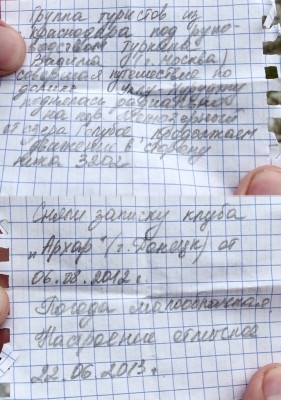 Группа туристов из
Краснодара под руко-
водством Туркина
Вадима (г. Москва)
совершая путешествие по
долине
поднялась радиально
на пер.
от озера Голубое. Продолжаем
движение в сторону
пика 3202
Сняли записку клуба
„Архар" (г. Донецк) от
06.08.2012 г.
Погода малооблачная.
Настроение отличное
22.06.2013 г.